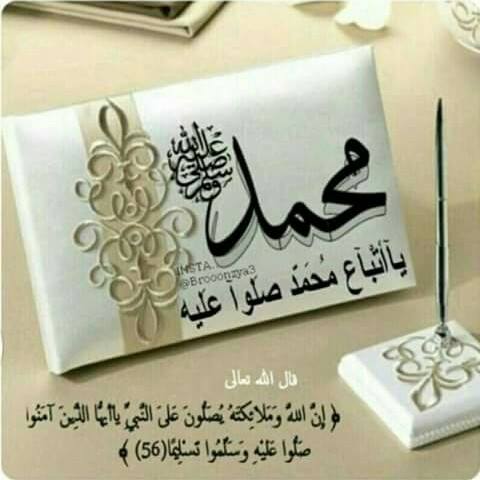 محمد صلى الله عليه وسلم
يآأتْبآع مُحمَدّ صلوآ عليه
INSTA.
@Brooonzya3
قال الله تعالى
﴿ إِنَّ اللَّهَ وَمَلَائِكَتَهُ يُصَلُّونَ عَلَى النَّبِيِّ يَاأَيُّهَا الَّذِينَ آمَنُوا
صَلُّوا عَلَيْهِ وَسَلِّمُوا تَسْلِيمًا(56) ﴾